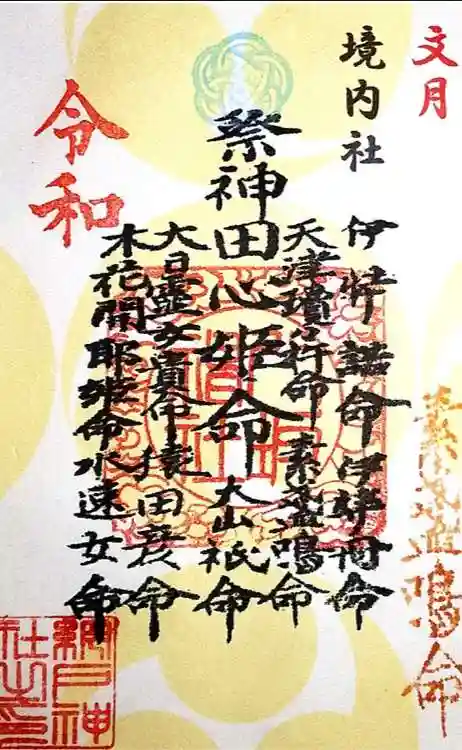 文月
境内社
伊弉諾命伊弉冉命
天津瓊々杵命素盞嗚命
祭神田心姫命大山祇命
大日孁女貴命猿田彦命
木花開耶姫命水速女命
令和
素盞嗚命
神社之印